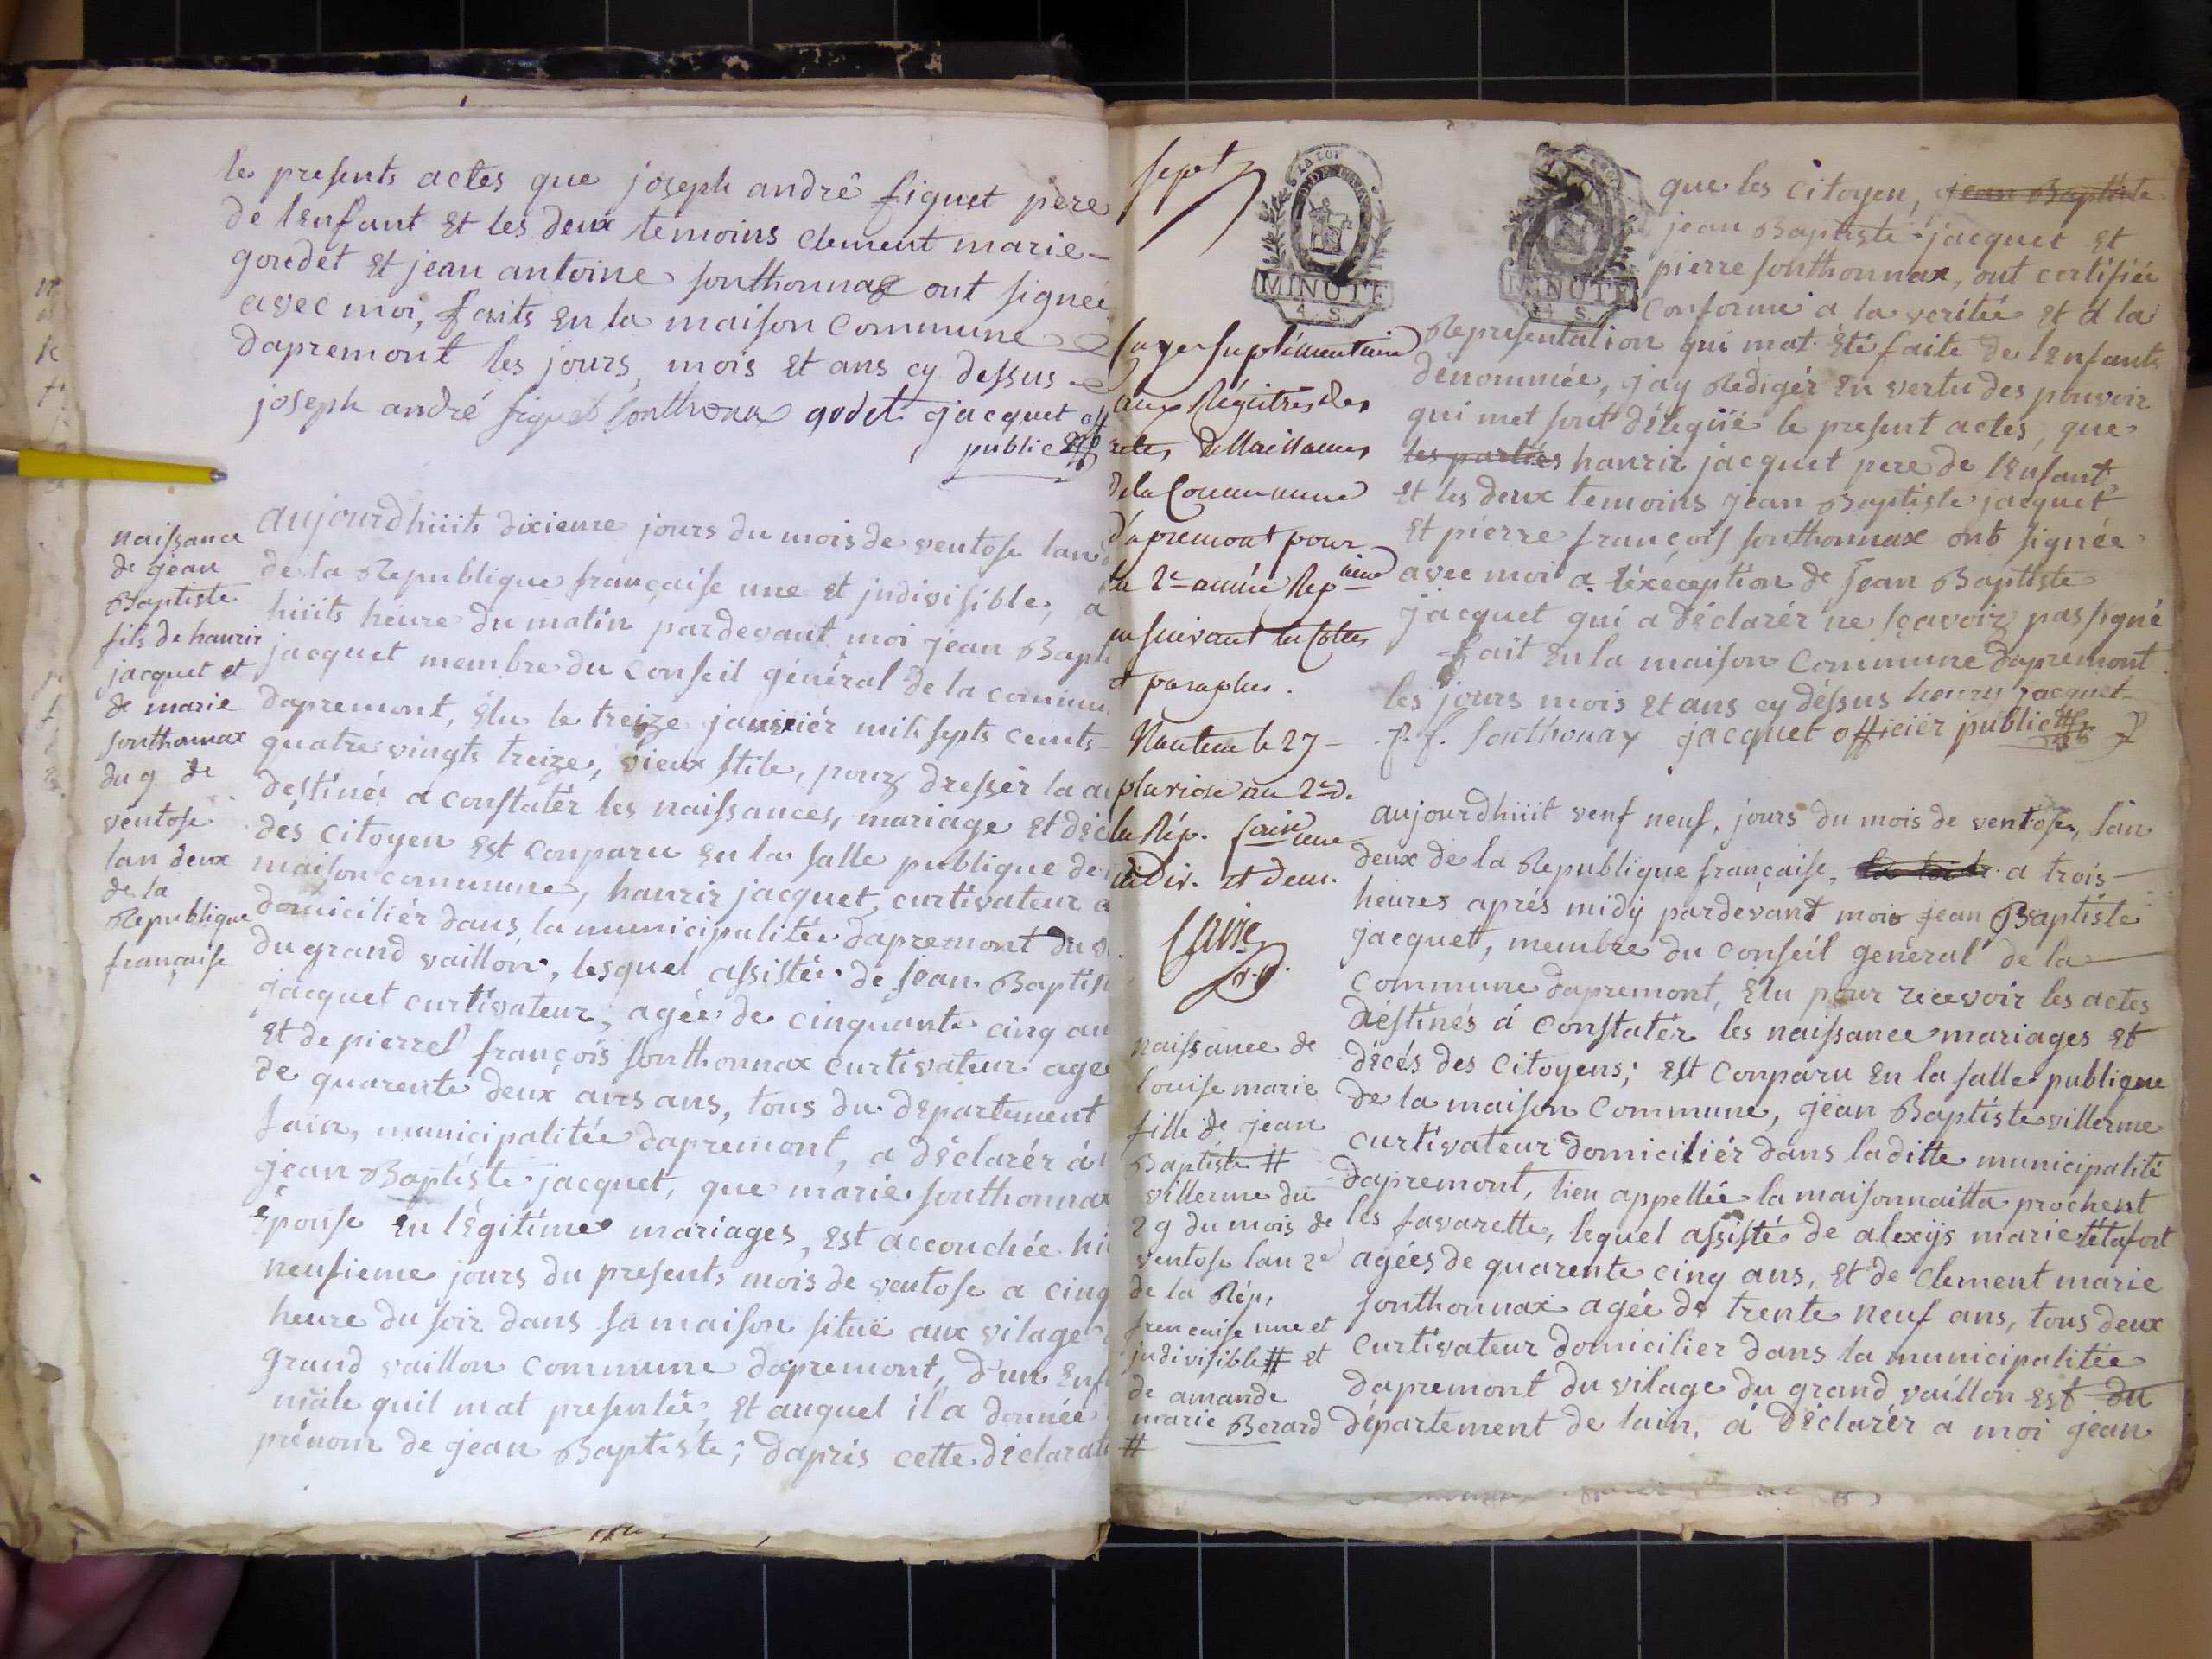 le presents actes que joseph andrê figuet pere
de lenfant et les deux temoins clement marie
goudet et jean antoine sonthonnax ont signée
avec moi, faits en la maison commune
dapremont les jours, mois et ans cy dessus
joseph andré figuet sonthonax godet jacquet off
public
naissance
de jean
Baptiste
fils de hanrir
jacquet et
de marie
sonthonnax
du 9 de
ventose
lan deux
de la
Republique
française
aujourdhiiits dixieme jours du mois de ventose lan
de la Republique française une et jndivisible, a
hiiits heure du matin pardevant moi jean Bapti
jacquet membre du Conseil général de la commu
dapremont, élu le treize janviér mil septs cents
quatre vingts treize, vieux stile, pour dressér la
destinée a constatér les naissances, mariage et déc
des citoyen est conparu en la salle publique de
maison commune, hanrir jacquet, curtivateur
domiciliér dans la municipalitée dapremont du
du grand vaillon, lesquel assistée de jean Baptis
jacquet curtivateur, agée de cinquante cinq an
et de pierre françois sonthonnax curtivateur age
de quarente deux ans ans, tous du département
lain, municipalitée dapremont, a déclarér à
jean Baptiste jacquet, que marie sonthonnax
épouse en légitime mariages, est accouchée hi
neufieme jours du presents mois de ventose a cinq
heure du soir dans sa maison situé aux vilage
grand vaillon commune dapremont, d'un enf
mâle quil mat presentée, et auquel il a donnée
prénom de jean Baptiste; dapris cette déclarati
sept
LA LOI
MINUTE
4. S.
MINUTE
S.
feuger suplémentaire
aux Régitres des
actes de Naissances
de la Commune
d'apremont pour
la 2e année Repicaine
en suivant les cottes
et paraphes.
Nantua le 27
pluviose an 2e de
la Rép. une
indiv. et dem.
que les citoyen, jean Baptiste
jean Baptiste jacquet et
pierre sonthonnax, ont certifiée
conforme a la veritée et a la
Representation qui mat été faite de lenfants
dénommée, jay Rédigér en vertu des pouvoir
qui met sont délegüé le present actes, que
les parties hanrir jacquet pere de lenfant
et les deux temoins jean Baptiste jacquet
et pierre françois sonthonnax ont signée
avec moi a léxéception de jean Baptiste
jacquet qui a déclarér ne sçavoir pas signé
fait en la maison commune dapremont
les jours mois et ans cy déssus henry jacquet
p. f. sonthonax jacquet officiér public
naissance de
louise marie
fille de jean
Baptiste #
villerme du
29 du mois de
ventose lan 2e
de la Rép,
francaise une et
jndivisible # et
de amande
marie Berard
#
aujourdhiiit venf neuf, jours du mois de ventose, lan
deux de la Republique française, a trois
heures aprés midÿ pardevant mois jean Baptiste
jacquett, membre du conseil general de la
commune dapremont, élu pour recevoir les actes
déstinés á constatér les naissance mariages et
décés des citoyens; est conparu en la salle publique
de la maison commune, jean Baptiste villerme
curtivateur domiciliér dans laditte municipalité
dapremont, lieu appellée la maisonnaitta prochent
les favarette, lequel assisté de alexijs marie tétafort
agées de quarente cinq ans, et de clement marie
sonthonnax agée de trente neuf ans, tous deux
curtivateur domicilier dans la municipalitée
dapremont du vilage du grand vaillon est du
département de lain, á déclarér a moi jean